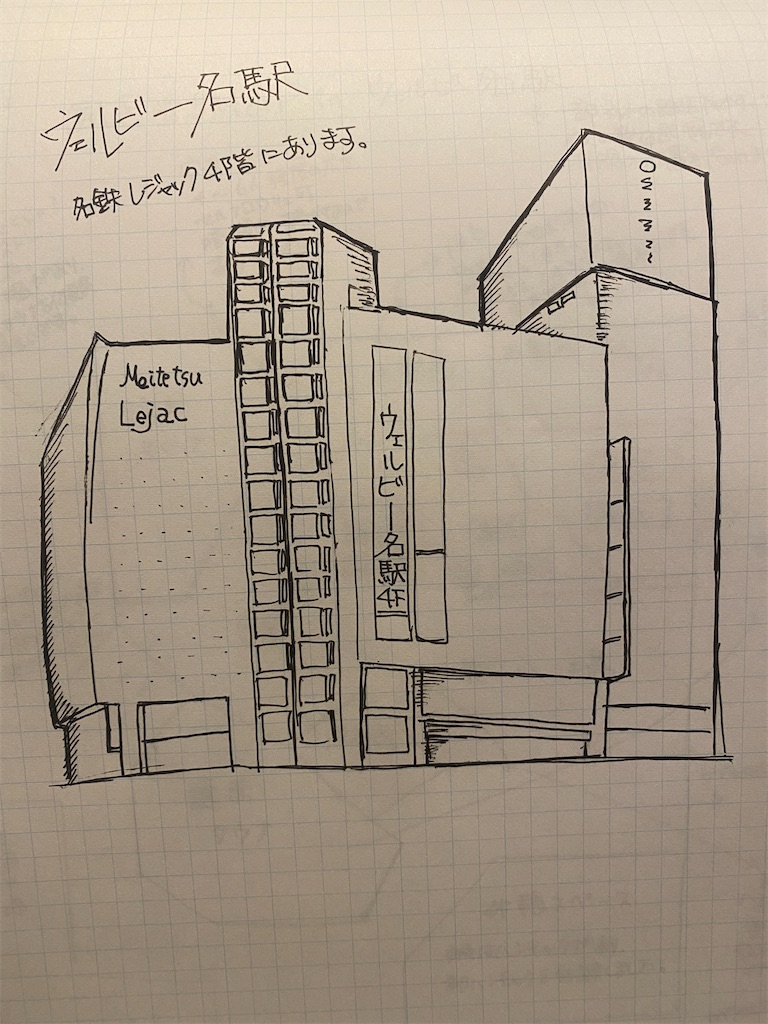 ウェルビー名駅
名鉄レジャック4階にあります。
Meitetsu
Lejac
ウェルビー名駅4F